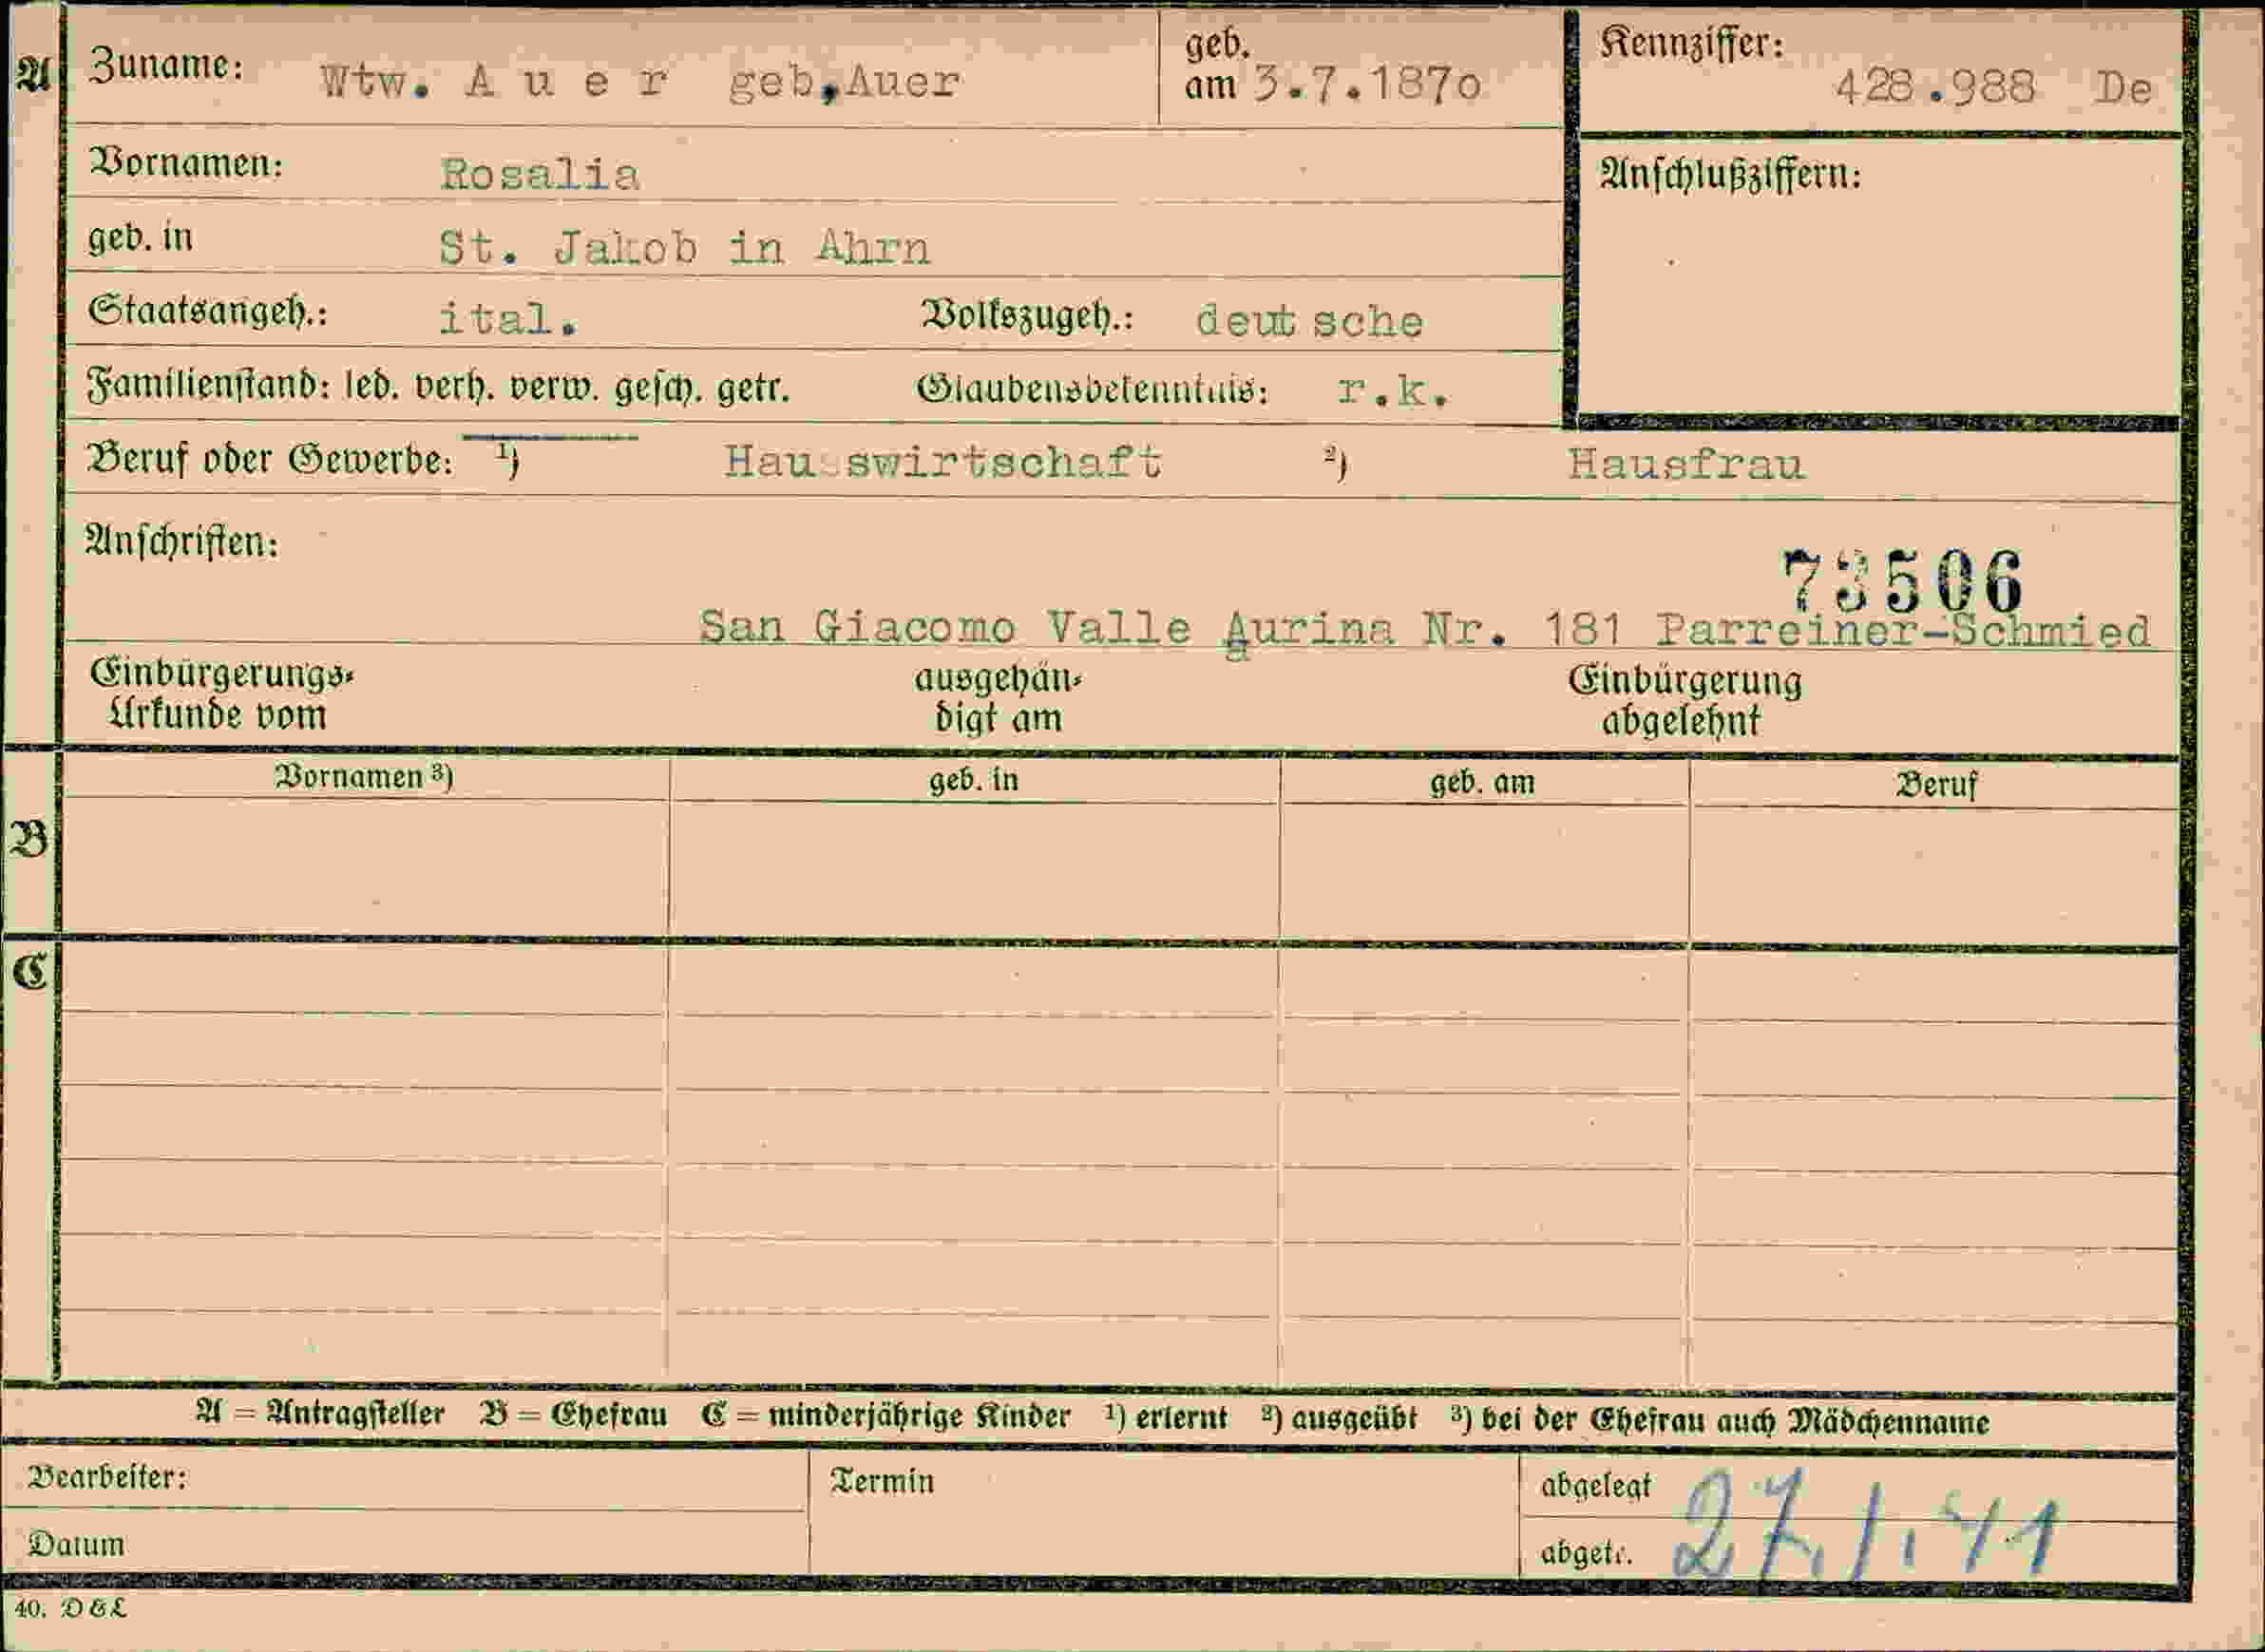 A Zuname: Wtw. A u e r geb,Auer geb. am 3.7.1870 Kennziffer: 428.988 De
Vornamen: Rosalia Anschlußziffern:
geb. in St. Jakob in Ahrn
Staatsangeh.: ital. Volkszugeh.: deutsche
Familienstand: led. verh. verw. gesch. getr. Glaubensbekenntnis: r.k.
Beruf oder Gewerbe: 1) Hauswirtschaft 2) Hausfrau
Anschriften:
73506
San Giacomo Valle Aurina Nr. 181 Parreiner-Schmied
Einbürgerungs-Urkunde vom ausgehändigt am Einbürgerung abgelehnt
Vornamen 3) geb. in geb. am Beruf
B
C
A = Antragsteller B = Ehefrau C = minderjährige Kinder 1) erlernt 2) ausgeübt 3) bei der Ehefrau auch Mädchenname
Bearbeiter: Termin abgelegt 27.1.41
Datum abgetr.
40. D&L